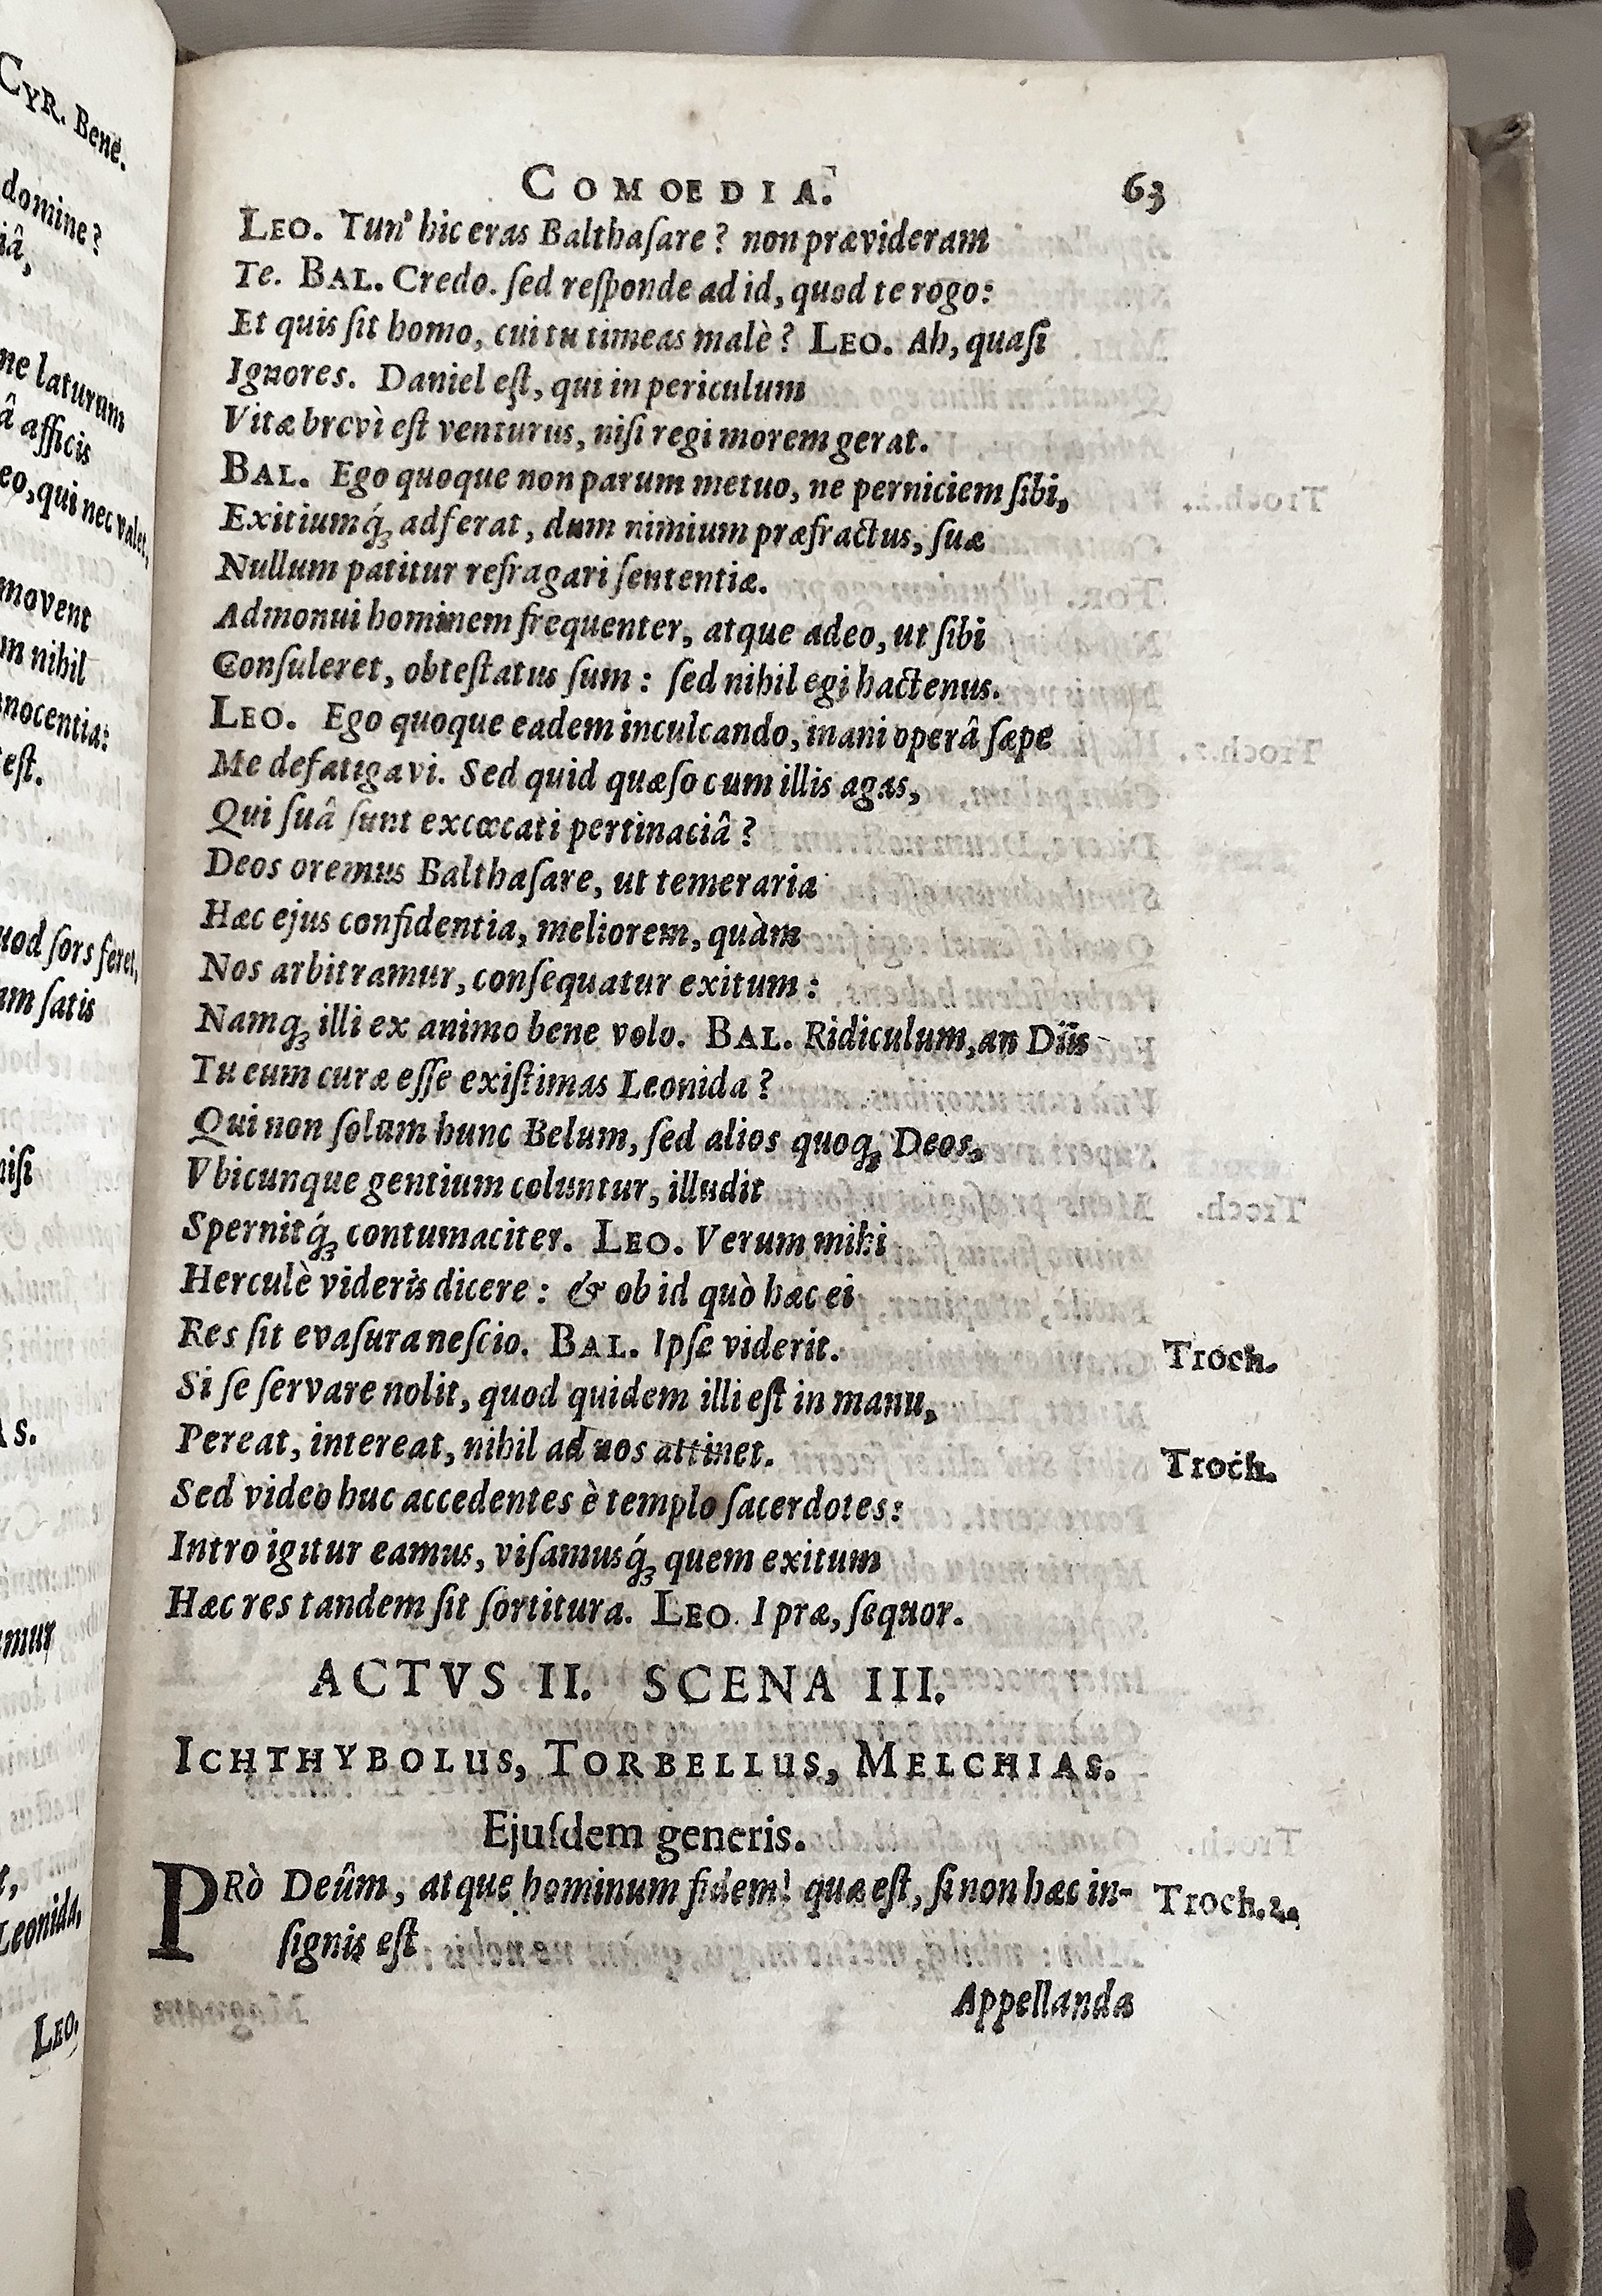 CYR. Bene.
domine?
iâ,
ne laturum
â afficis
eo, qui nec valet,
movent
m nihil
nnocentia:
est.
uod sors feret,
am satis
nisi
AS.
amur
Leonida,
LEO.
COMOEDIA. 63
LEO. Tun' hic eras Balthaſare? non prævideram
Te. BAL. Credo. ſed reſponde ad id, quod te rogo:
Et quis ſit homo, cui tu timeas malè? LEO. Ah, quaſi
Ignores. Daniel eſt, qui in periculum
Vitæ brevì eſt venturus, niſi regi morem gerat.
BAL. Ego quoque non parum metuo, ne perniciem ſibi,
Exitiumq́ꝫ adferat, dum nimium præfractus, ſuæ
Nullum patitur refragari ſententiæ.
Admonui hominem frequenter, atque adeo, ut ſibi
Conſuleret, obteſtatus ſum: ſed nihil egi hactenus.
LEO. Ego quoque eadem inculcando, inani operâ ſæpe
Me defatigavi. Sed quid quæſo cum illis agas,
Qui ſuâ ſunt excœcati pertinaciâ?
Deos oremus Balthaſare, ut temeraria
Hæc ejus confidentia, meliorem, quàm
Nos arbitramur, conſequatur exitum:
Namqꝫ illi ex animo bene volo. BAL. Ridiculum, an Diis
Tu eum curæ eſſe exiſtimas Leonida?
Qui non ſolum hunc Belum, ſed alios quoqꝫ Deos,
Vbicunque gentium coluntur, illudit
Spernitq́ꝫ contumaciter. LEO. Verum mihi
Herculè videris dicere: & ob id quò hæc ei
Res ſit evaſura neſcio. BAL. Ipſe viderit. Troch.
Si ſe ſervare nolit, quod quidem illi eſt in manu,
Pereat, intereat, nihil ad nos attinet. Troch.
Sed video huc accedentes è templo ſacerdotes:
Intro igitur eamus, viſamusq́ꝫ quem exitum
Hæc res tandem ſit ſortitura. LEO. I præ, ſequor.
ACTVS II. SCENA III.
ICHTHYBOLUS, TORBELLUS, MELCHIAS.
Ejuſdem generis.
PRò Deûm, atque hominum fidem! quæ eſt, ſi non hæc in- Troch. 2.
ſignis eſt
Appellanda